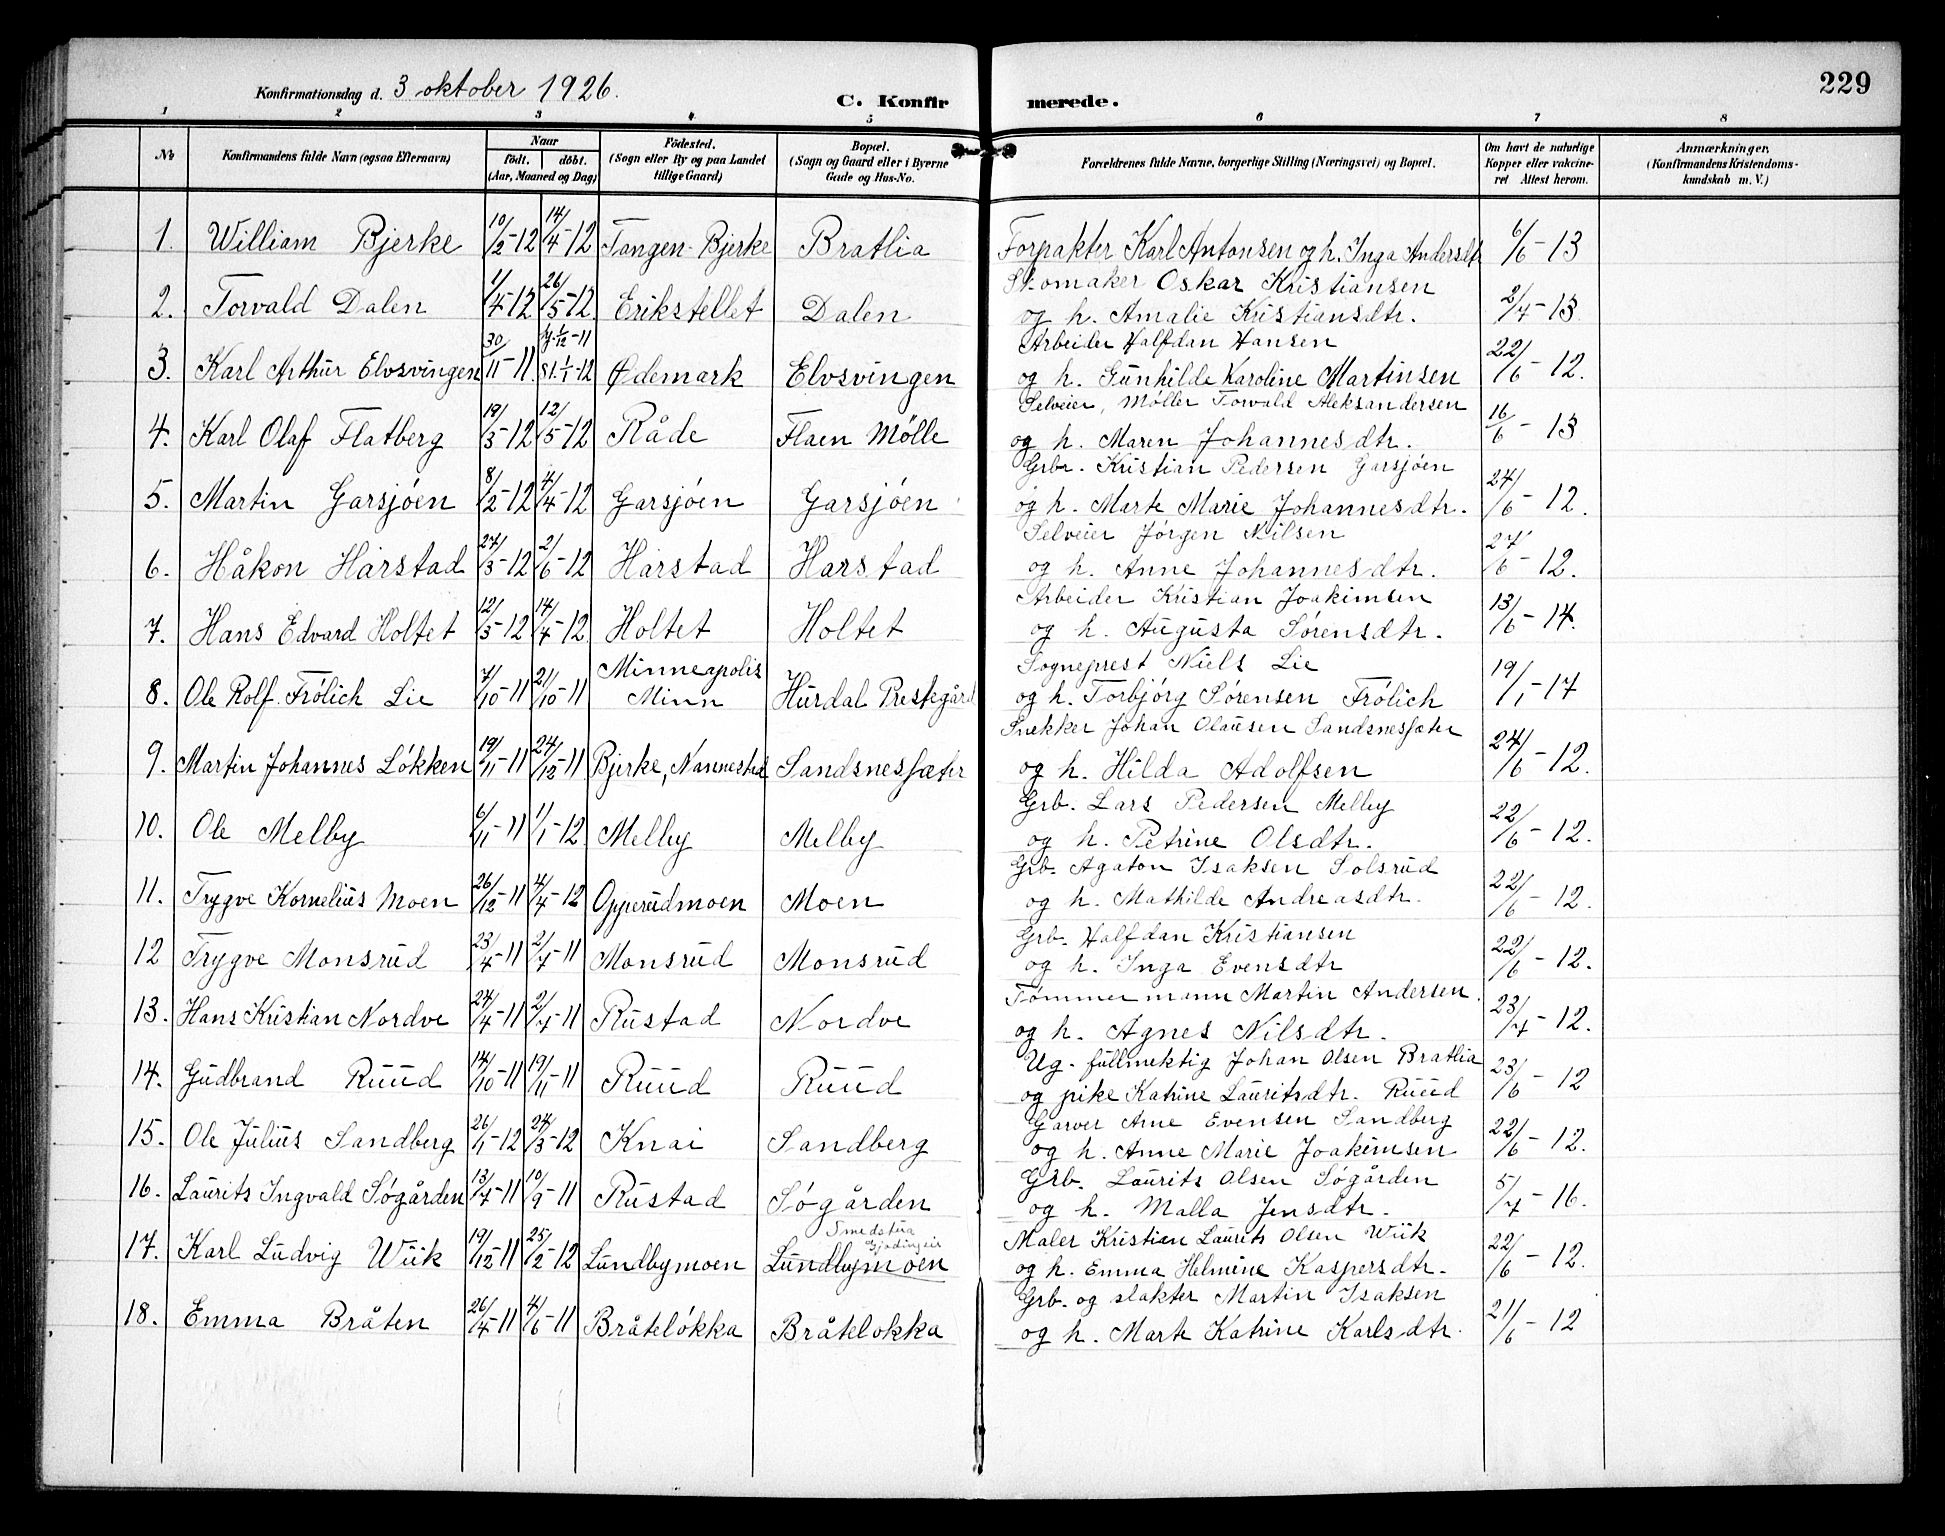 Konfirmationsdag d. 3 oktober 1926.
C. Konfirmerede.
229
1 2 3 4 5 6 7 8
No
Konfirmandens fulde Navn (ogsaa Efternavn)
Naar
født. døbt.
(Aar, Maaned og Dag)
Fødested.
(Sogn eller By og paa Landet
tillige Gaard)
Bopæl.
(Sogn og Gaard eller i Byerne
Gade og Hus-No.
Forældrenes fulde Navne, borgerlige Stilling (Næringsvei) og Bopæl.
Om havt de naturlige
Kopper eller vakcine-
ret Attest herom.
Anmærkninger,
(Konfirmandens Kristendoms-
kundskab m. V.)
1. William Bjerke 10/2-12 14/4-12 Tangen-Bjerke Bratlia Forpakter Karl Antonsen og h. Inga Andersdtr 6/6-13
2. Torvald Dalen 1/4-12 26/5-12 Erikstellet Dalen Skomaker Oskar Kristiansen
og h. Amalie Kristiansdtr. 2/4-13
3. Karl Arthur Elvsvingen 30/11-11 hj. 1/12-11
st. 1/1-12 Ødemark Elvsvingen Arbeider Halfdan Hansen
og h. Gunhilde Karoline Martinsen 22/6-12.
4. Karl Olaf Flatberg 19/3-12 12/5-12 Råde Flaen Mølle Selveier, Møller Torvald Aleksandersen
og h. Maren Johannesdtr. 16/6-13
5. Martin Garsjøen 8/2-12 4/4-12 Garsjøen Garsjøen Grbr. Kristian Pedersen Garsjøen
og h. Marte Marie Johannesdtr. 24/6-12.
6. Håkon Harstad 27/3-12 2/6-12 Harstad Harstad Selveier Jørgen Nilsen
og h. Anne Johannesdtr. 24/6-12.
7. Hans Edvard Holtet 12/3-12 14/4-12 Holtet Holtet Arbeider Kristian Joakimsen
og h. Augusta Sørensdtr. 13/6-14.
8. Ole Rolf Frølich Lie 7/10-11 21/10-11 Minneapolis
Minn Hurdal Prestegård Sogneprest Niels Lie
og h. Torbjørg Sørensen Frølich 19/1-17
9. Martin Johannes Løkken 19/11-11 24/12-11 Bjerke, Nannestad Sandsnessæter Snekker Johan Olausen Sandsnessæter
og h. Hilda Adolfsen 24/6-12.
10. Ole Melby 6/11-11 1/1-12 Melby Melby Grb. Lars Pedersen Melby
og h. Petrine Olsdtr. 22/6-12.
11. Trygve Kornelius Moen 26/12-11 4/4-12 Opperudmoen Moen Grb. Agaton Isaksen Solsrud
og h. Mathilde Andreasdtr. 22/6-12.
12 Trygve Monsrud 23/4-11 2/7-11 Monsrud Monsrud Grb. Halfdan Kristiansen
og h. Inga Evensdtr 22/6-12.
13. Hans Kristian Nordve 24/4-11 2/7-11 Rustad Nordve Tømmermann Martin Andersen
og h. Agnes Nilsdtr. 23/7-12.
14. Gudbrand Ruud 14/10-11 19/11-11 Ruud Ruud Ug. fullmektig Johan Olsen Bratlia
og pike Katrine Lauritsdtr. Ruud 23/6-12
15. Ole Julius Sandberg 26/1-12 24/3-12 Knai Sandberg Garver Arne Evensen Sandberg
og h. Anne Marie Joakimsen 22/6-12.
16. Laurits Ingvald Søgården 13/7-11 10/9-11 Rustad Søgården Grb. Laurits Olsen Søgården
og h. Malla Jensdtr. 5/7-16.
17. Karl Ludvig Wiik 19/12-11 25/2-12 Lundbymoen Smedstua
Lundbymoen Maler Kristian Laurits Olsen Wiik
og h. Emma Helmine Kaspersdtr. 22/6-12.
18. Emma Bråten 26/4-11 4/6-11 Bråteløkka Bråteløkka Grb. og slakter Martin Isaksen
og h. Marte Katrine Karlsdtr. 21/6-12